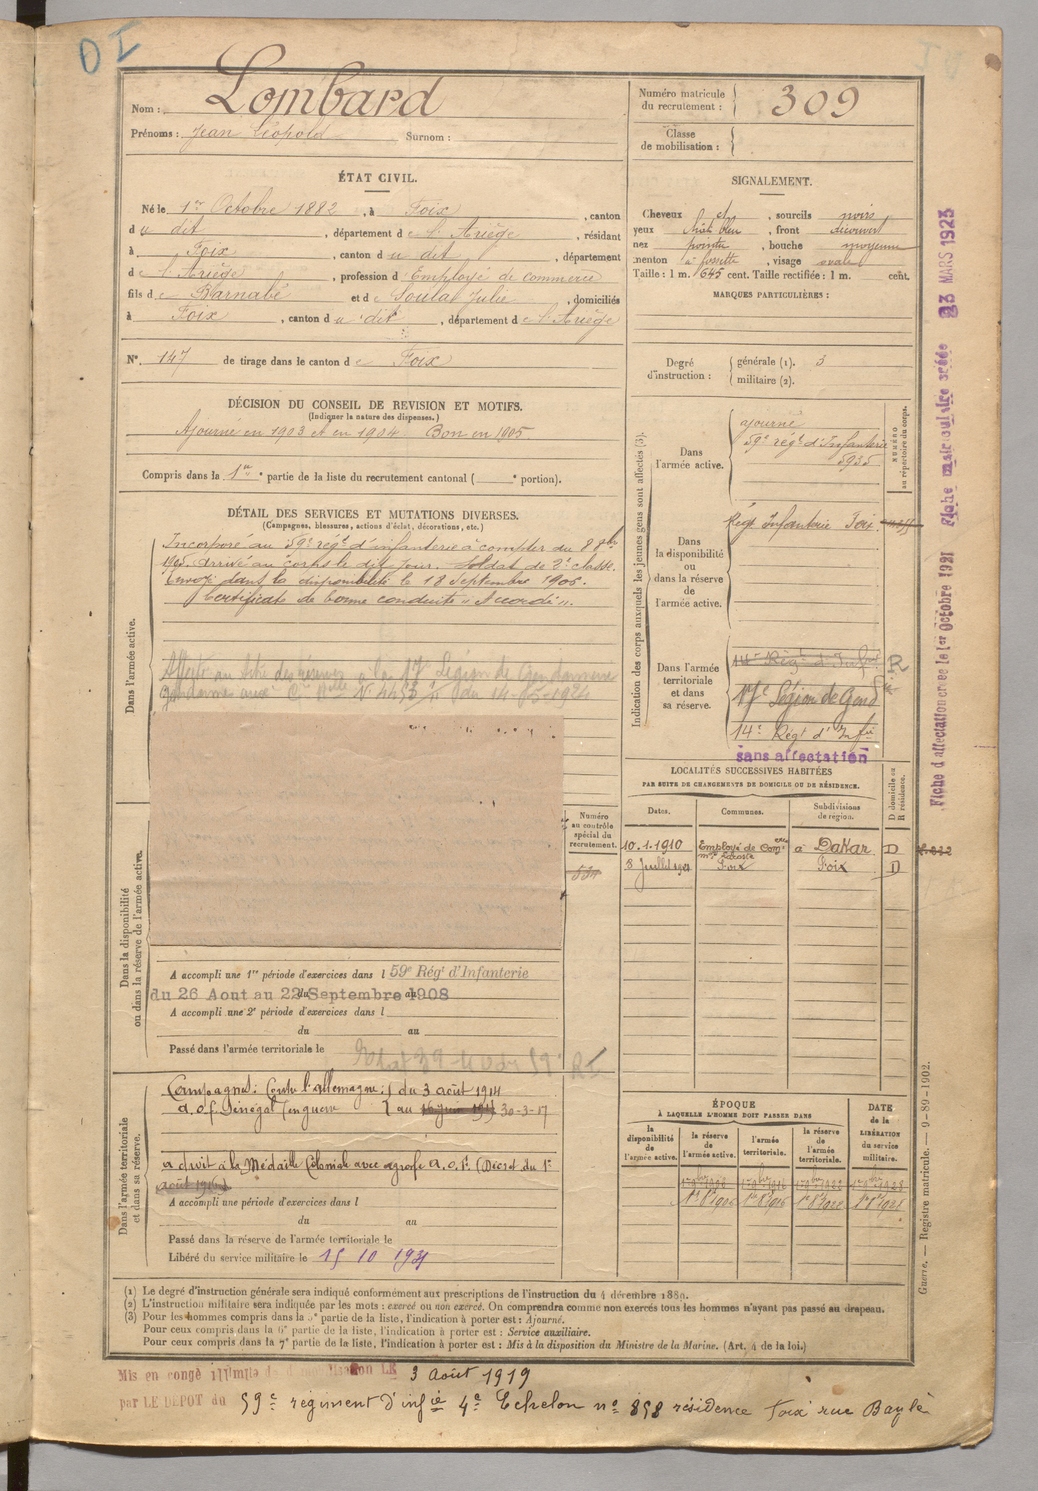 D I
Nom : Lombard
Prénoms : Jean Léopold Surnom :
Numéro matricule du recrutement : 309
Classe de mobilisation :
ÉTAT CIVIL.
Né le 1er Octobre 1882, à Foix, canton
d u dit, département d e l'Ariège, résidant
à Foix, canton d u dit, département
d e l'Ariège, profession d' Employé de commerce
fils d e Barnabé et d e Soula Julie, domiciliés
à Foix, canton d u dit, département d e l'Ariège
N°. 147 de tirage dans le canton d e Foix
SIGNALEMENT.
Cheveux et, sourcils noirs
yeux bleu, front découvert
nez pointu, bouche moyenne
menton à fossette, visage ovale
Taille : 1 m. 645 cent. Taille rectifiée : 1 m. cent.
MARQUES PARTICULIÈRES :
Degré d'instruction : générale (1). 3
militaire (2).
DÉCISION DU CONSEIL DE REVISION ET MOTIFS.
(Indiquer la nature des dispenses.)
Ajourné en 1903 et en 1904 Bon en 1905
Compris dans la 1re partie de la liste du recrutement cantonal ( e portion).
DÉTAIL DES SERVICES ET MUTATIONS DIVERSES.
(Campagnes, blessures, actions d'éclat, décorations, etc.)
Dans l'armée active.
Incorporé au 59e régt d'infanterie à compter du 8 8bre
1905. Arrivé au corps le dit jour. Soldat de 2e classe.
Envoyé dans la disponibilité le 18 Septembre 1906.
Certificat de bonne conduite "Accordé".
la 17e Légion de Gendarmerie
du 14-05-1924
Indication des corps auxquels les jeunes gens sont affectés (3).
NUMÉRO au répertoire du corps.
Dans l'armée active.
ajourné
59e régt d'Infanterie
5935
Dans la disponibilité ou dans la réserve de l'armée active.
Régt Infanterie Foix
Dans l'armée territoriale et dans sa réserve.
14e Régt d'Infie R
17e Légion de Gend
14e Régt d'Infie
sans affectation
LOCALITÉS SUCCESSIVES HABITÉES
PAR SUITE DE CHANGEMENTS DE DOMICILE OU DE RÉSIDENCE.
D domicile ou R résidence.
Dates. Communes. Subdivisions de région.
10.1.1910 Employé de Comce à Dakar D
8 Juillet Foix Foix D
Numéro au contrôle spécial du recrutement.
Dans la disponibilité ou dans la réserve de l'armée active.
A accompli une 1re période d'exercices dans l 59e Régt d'Infanterie
du 26 Aout au 22 Septembre 1908
A accompli une 2e période d'exercices dans l
du au
Passé dans l'armée territoriale le
Dans l'armée territoriale et dans sa réserve.
Campagnes : Contre l'allemagne : du 3 août 1914
a.o.f. Sénégal en guerre au 30-3-17
a droit à la Médaille Coloniale avec agrafe A.O.F. (Décret du 1er
août
A accompli une période d'exercices dans l
du au
Passé dans la réserve de l'armée territoriale le
Libéré du service militaire le 15 10 1931
ÉPOQUE
À LAQUELLE L'HOMME DOIT PASSER DANS
la disponibilité de l'armée active. la réserve de l'armée active. l'armée territoriale. la réserve de l'armée territoriale.
DATE de la LIBÉRATION du service militaire.
(1) Le degré d'instruction générale sera indiqué conformément aux prescriptions de l'instruction du 4 décembre 1889.
(2) L'instruction militaire sera indiquée par les mots : exercé ou non exercé. On comprendra comme non exercés tous les hommes n'ayant pas passé au drapeau.
(3) Pour les hommes compris dans la 5e partie de la liste, l'indication à porter est : Ajourné.
Pour ceux compris dans la 6e partie de la liste, l'indication à porter est : Service auxiliaire.
Pour ceux compris dans la 7e partie de la liste, l'indication à porter est : Mis à la disposition du Ministre de la Marine. (Art. 4 de la loi.)
Mis en congé illimité de démobilisation LE 3 août 1919
par LE DÉPOT du 59e régiment d'infie 4e Echelon no 858 résidence Foix rue Bayle
Guerre. — Registre matricule. — 9-89-1902.
Fiche d'affectation créée le 1er Octobre 1921 Fiche matriculaire créée 23 MARS 1923